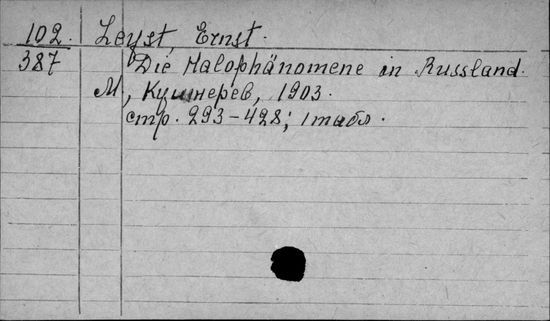 102. Leyst, Ernst.
387 Die Halophänomene in Russland.
М, Кушнерев, 1903.
стр. 293-428; 1 табл.